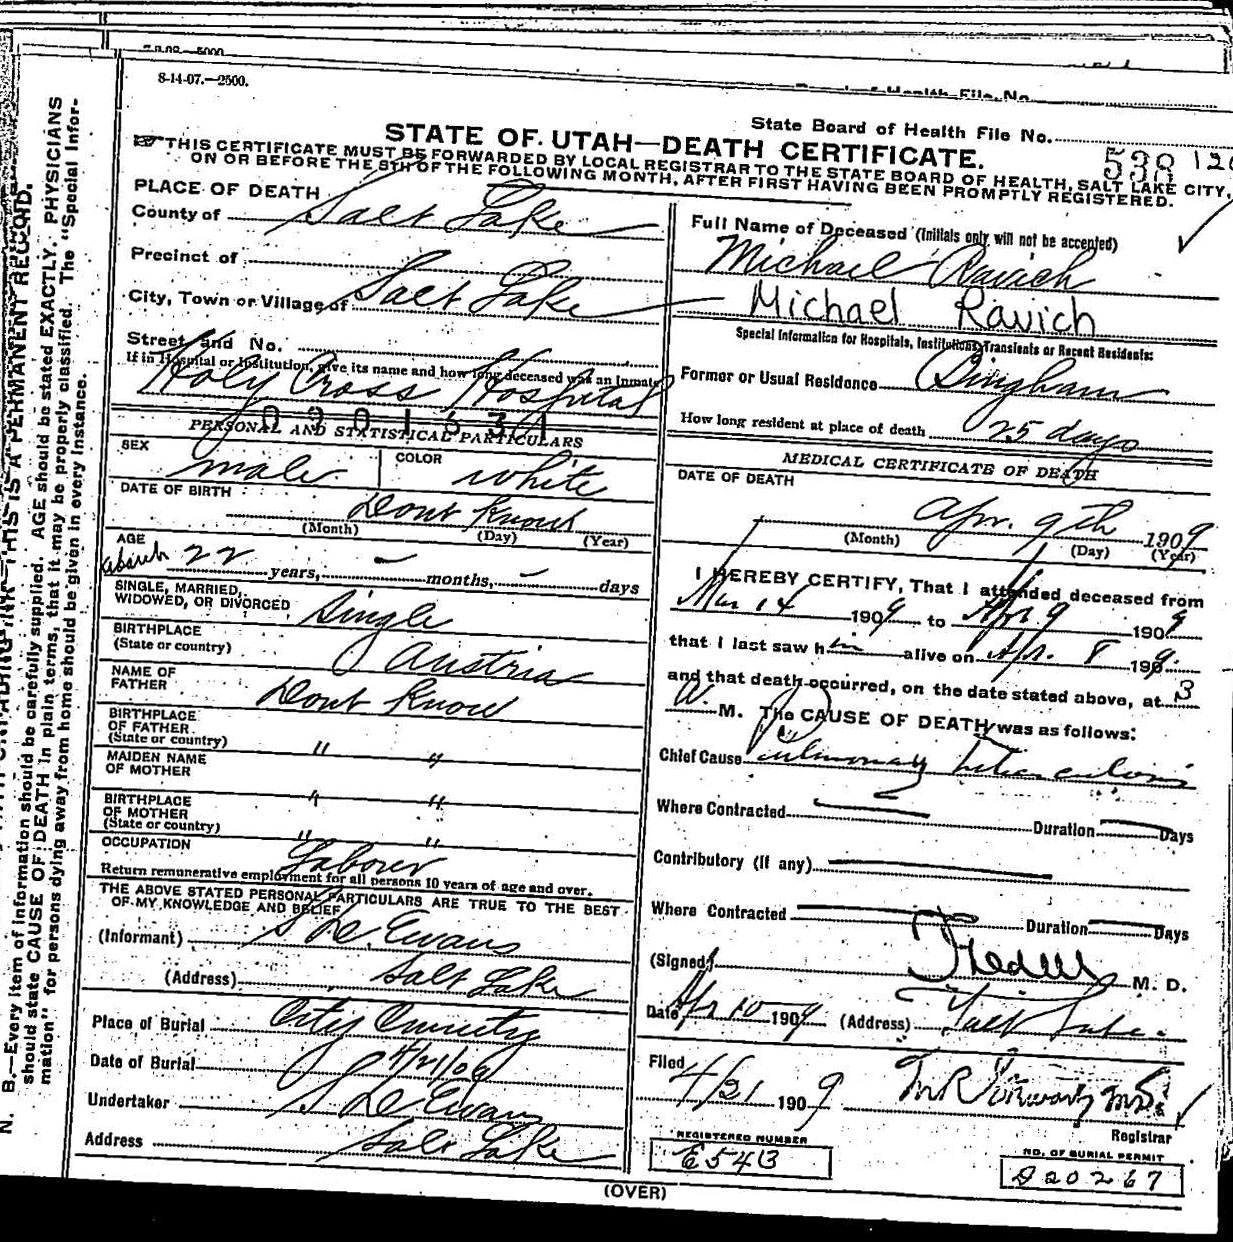 8-14-07.—2500.
State Board of Health File No.
STATE OF UTAH—DEATH CERTIFICATE.
538 120
THIS CERTIFICATE MUST BE FORWARDED BY LOCAL REGISTRAR TO THE STATE BOARD OF HEALTH, SALT LAKE CITY,
ON OR BEFORE THE 5TH OF THE FOLLOWING MONTH, AFTER FIRST HAVING BEEN PROMPTLY REGISTERED.
PLACE OF DEATH
County of Salt Lake
Precinct of
City, Town or Village of Salt Lake
Street and No.
If in Hospital or Institution, give its name and how long deceased was an Inmate
Holy Cross Hospital
PERSONAL AND STATISTICAL PARTICULARS
SEX male COLOR white
DATE OF BIRTH Dont Know
(Month) (Day) (Year)
AGE
about 22 years, — months, — days
SINGLE, MARRIED,
WIDOWED, OR DIVORCED Single
BIRTHPLACE
(State or country) Austria
NAME OF
FATHER Dont Know
BIRTHPLACE
OF FATHER
(State or country) " "
MAIDEN NAME
OF MOTHER " "
BIRTHPLACE
OF MOTHER
(State or country) " "
OCCUPATION " "
Laborer
Return remunerative employment for all persons 10 years of age and over.
THE ABOVE STATED PERSONAL PARTICULARS ARE TRUE TO THE BEST
OF MY KNOWLEDGE AND BELIEF
(Informant) S D Evans
(Address) Salt Lake
Place of Burial City Cemetery
Date of Burial 4/21/09
Undertaker S D Evans
Address Salt Lake
Full Name of Deceased (Initials only will not be accepted)
Michael Ravich
Michael Ravich
Special Information for Hospitals, Institutions, Transients or Recent Residents:
Former or Usual Residence Bingham
How long resident at place of death 25 days
MEDICAL CERTIFICATE OF DEATH
DATE OF DEATH
Apr. 9th 1909
(Month) (Day) (Year)
I HEREBY CERTIFY, That I attended deceased from
Mar 14 1909 to Apr 9 1909
that I last saw him alive on Apr. 8 1909.
and that death occurred, on the date stated above, at 3
a. M. The CAUSE OF DEATH was as follows:
Chief Cause Pulmonary Tuberculosis
Where Contracted — Duration — Days
Contributory (if any) —
Where Contracted — Duration — Days
(Signed) M. D.
Date Apr 10 1909 (Address) Salt Lake.
Filed
4/21 1909 M.D.
Registrar
REGISTERED NUMBER
E543
NO. OF BURIAL PERMIT
D20267
(OVER)
N. B.—Every item of information should be carefully supplied. AGE should be stated EXACTLY. PHYSICIANS
should state CAUSE OF DEATH in plain terms, that it may be properly classified. The "Special Infor-
mation" for persons dying away from home should be given in every instance.
THIS IS A PERMANENT RECORD.